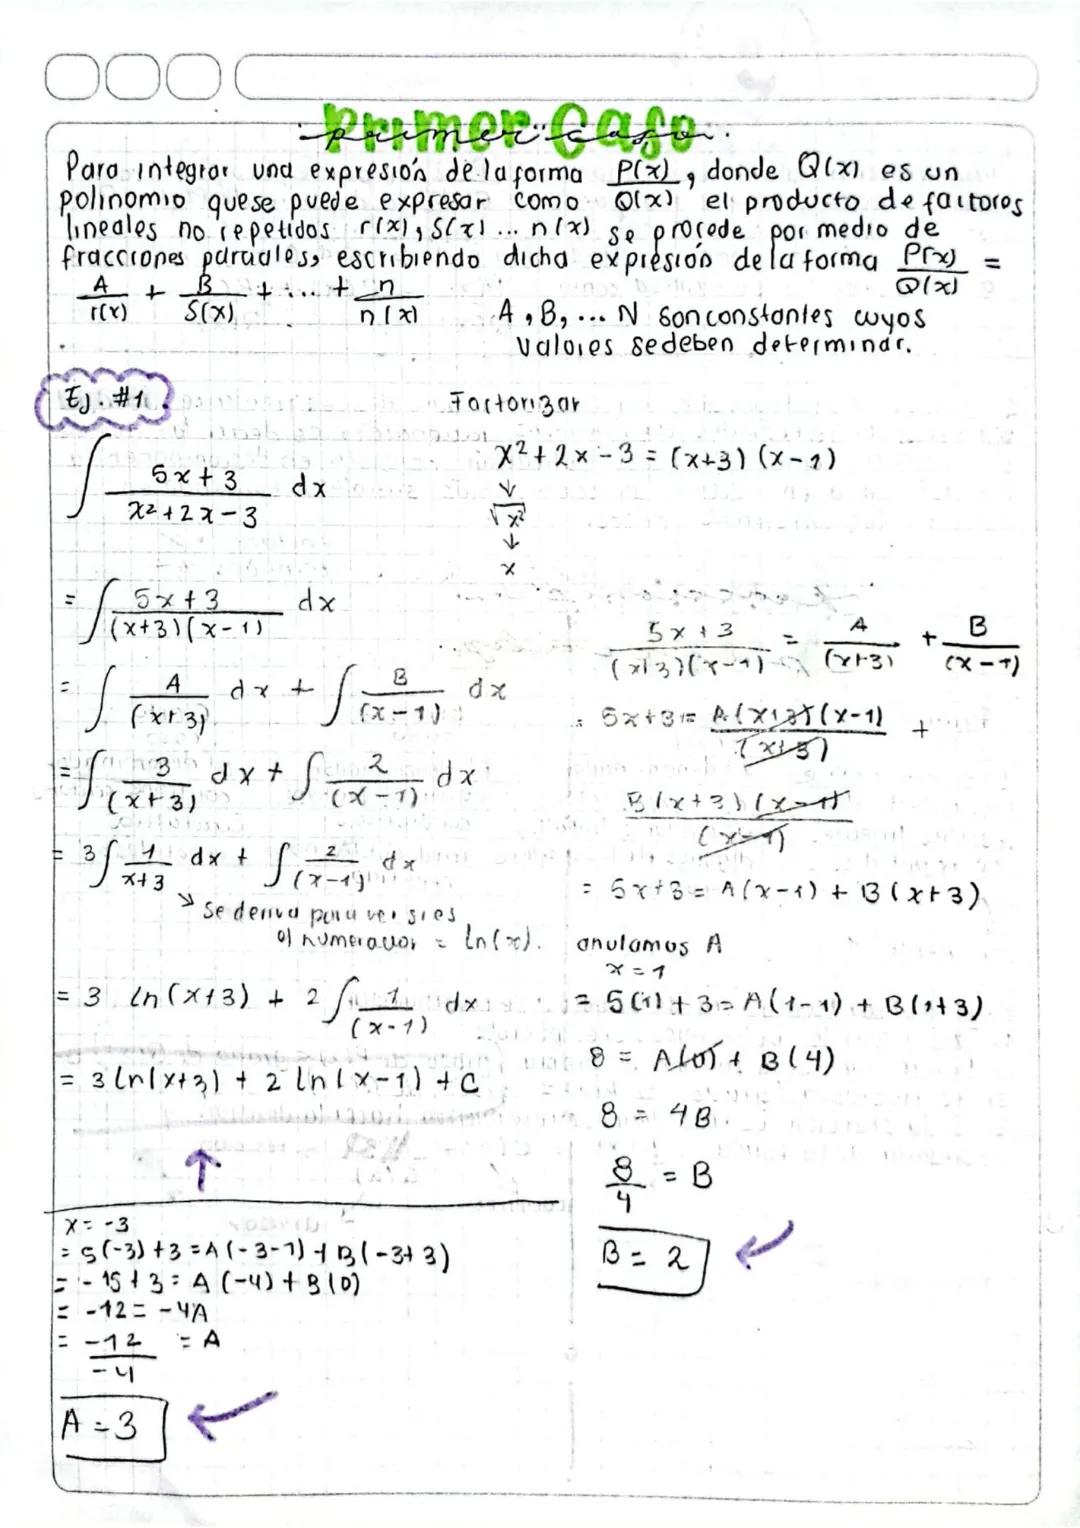 Primer Caso
primer caso.
Para integrar una expresión de la forma P(x)/Q(x), donde Q(x) es un
polinomio que se puede expresar como el producto de factores
lineales no repetidos r(x), S(x) ... n(x) se procede por medio de
fracciones parciales, escribiendo dicha expresión de la forma P(x)/Q(x) =
A/r(x) + B/S(x) + ... + n/n(x)
A, B, ... N son constantes cuyos
valores se deben determinar.
Ej. #1
∫ (5x+3)/(x²+2x-3) dx
= ∫ (5x+3)/((x+3)(x-1)) dx
= ∫ A/(x+3) dx + ∫ B/(x-1) dx
= ∫ 3/(x+3) dx + ∫ 2/(x-1) dx
= 3 ∫ 1/(x+3) dx + ∫ 2/(x-1) dx
↘ Se deriva para ver si es
el numerador = ln(x).
= 3 ln(x+3) + 2 ∫ 1/(x-1) dx
= 3 ln(x+3) + 2 ln(x-1) + C
↑
x = -3
= 5(-3)+3 = A(-3-1) + B(-3+3)
= -15+3 = A(-4) + B(0)
= -12 = -4A
= -12/-4 = A
A = 3
Factorizar
x²+2x-3 = (x+3)(x-1)
↓
√x²
↓
x
(5x+3)/((x+3)(x-1)) = A/(x+3) + B/(x-1)
= 5x+3 = A(x+3)(x-1)/(x+3) +
B(x+3)(x-1)/(x-1)
= 5x+3 = A(x-1) + B(x+3)
anulamos A
x = 1
= 5(1)+3 = A(1-1) + B(1+3)
8 = A(0) + B(4)
8 = 4B
8/4 = B
B = 2